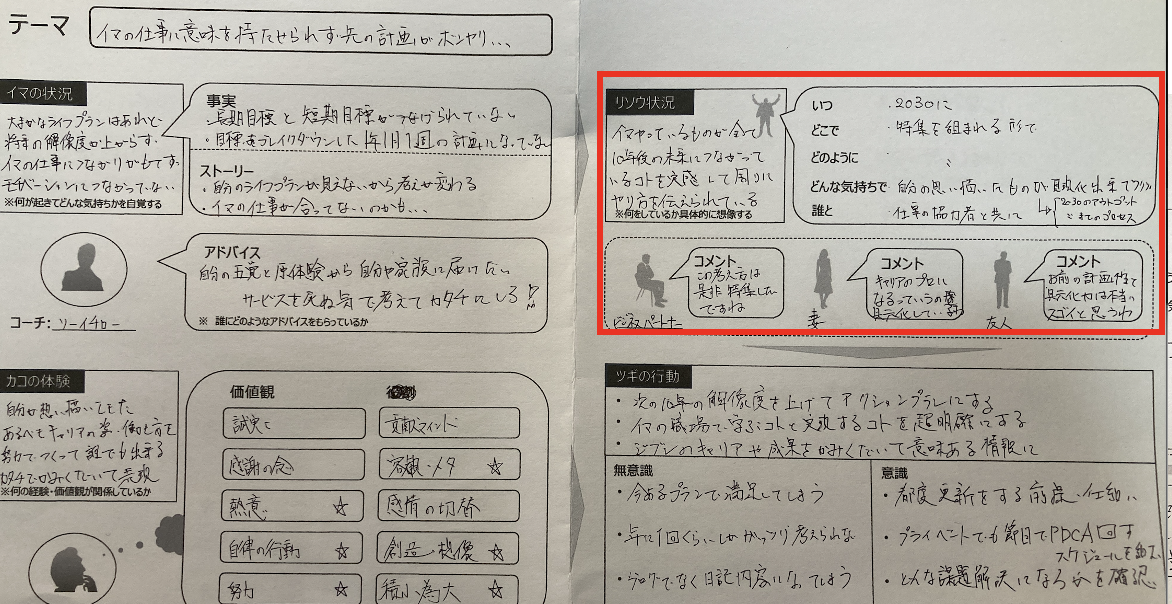 テーマ
イマの仕事に意味を持たせられず先の計画がボンヤリ...
イマの状況
大まかなライフプランはあれど
将来の解像度が上がらず、
イマの仕事につながりがもてず、
モチベーションにつながっていない
※何が起きてどんな気持ちかを自覚する
事実
・長期目標と短期目標がつなげられていない
・目標をブレイクダウンした1年1月1週の計画になっていない
ストーリー
・自分のライフプランが見えないから考えが変わる
・イマの仕事が合ってないのかも...
アドバイス
自分の五覚と原体験から自分や家族に届けたい
サービスを死ぬ気で考えてカタチにしろ
※ 誰にどのようなアドバイスをもらっているか
コーチ: ソーイチロー
カコの体験
自分が想い描いてきた
あるべきキャリアの姿、働き方を
努力でつくって誰でも出来る
カタチでかみくだいて
※何の経験・価値観が関係しているか
価値観
誠実さ
貢献マインド
感謝の念
・メタ ☆
熱意 ☆
感情の切替
自律の行動 ☆
創造・想像 ☆
努力 ☆
積小為大 ☆
リソウ状況
イマやっているものが全て
10年後の未来につながって
いるコトを実感して周りに
やり方を伝えられている
※何をしているか具体的に想像する
いつ ・2030に
どこで ・特集を組まれる形で
どのように 〃
どんな気持ちで 自分の思い描いたものが具現化出来て
誰と 仕事の協力者と共に
2030のアウトプット
とそのプロセス
コメント
この考え方は
是非特集したい
ですね
ビジネスパートナー
コメント
キャリアのプロに
なるっていうの
具現化してい
妻
コメント
お前の計画性と
具現化力は本当に
スゴイと思うわ
友人
ツギの行動
・次の10年の解像度を上げてアクションプランにする
・イマの職場で学ぶコトと実現するコトを超明確にする
・ジブンのキャリアや成果をかみくだいて意味ある情報に
無意識
・今あるプランで満足してしまう
・年に1回くらいしかガッツリ考えられない
・ブログでなく日記内容になってしまう
意識
・都度更新をする前提、仕組に
・プライベートでも節目でPDCA回す
スケジュールを
・どんな課題解決になるかを確認